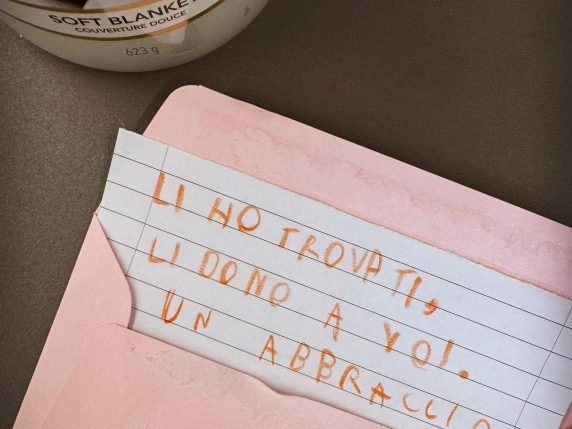 SOFT BLANKE
COUVERTURE DOUCE
623 g
LI HO TROVATI,
LI DONO A VOI.
UN ABBRACCIO